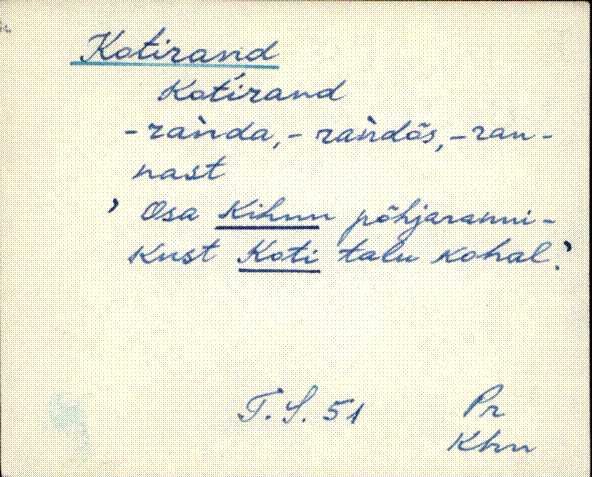 Kotirand
Kotirand
-rand̀a, -rand̀õs, -ran-
nast
' Osa Kihnu põhjaranni-
kust Koti talu kohal.'
T.S. 51 Pr
Khn